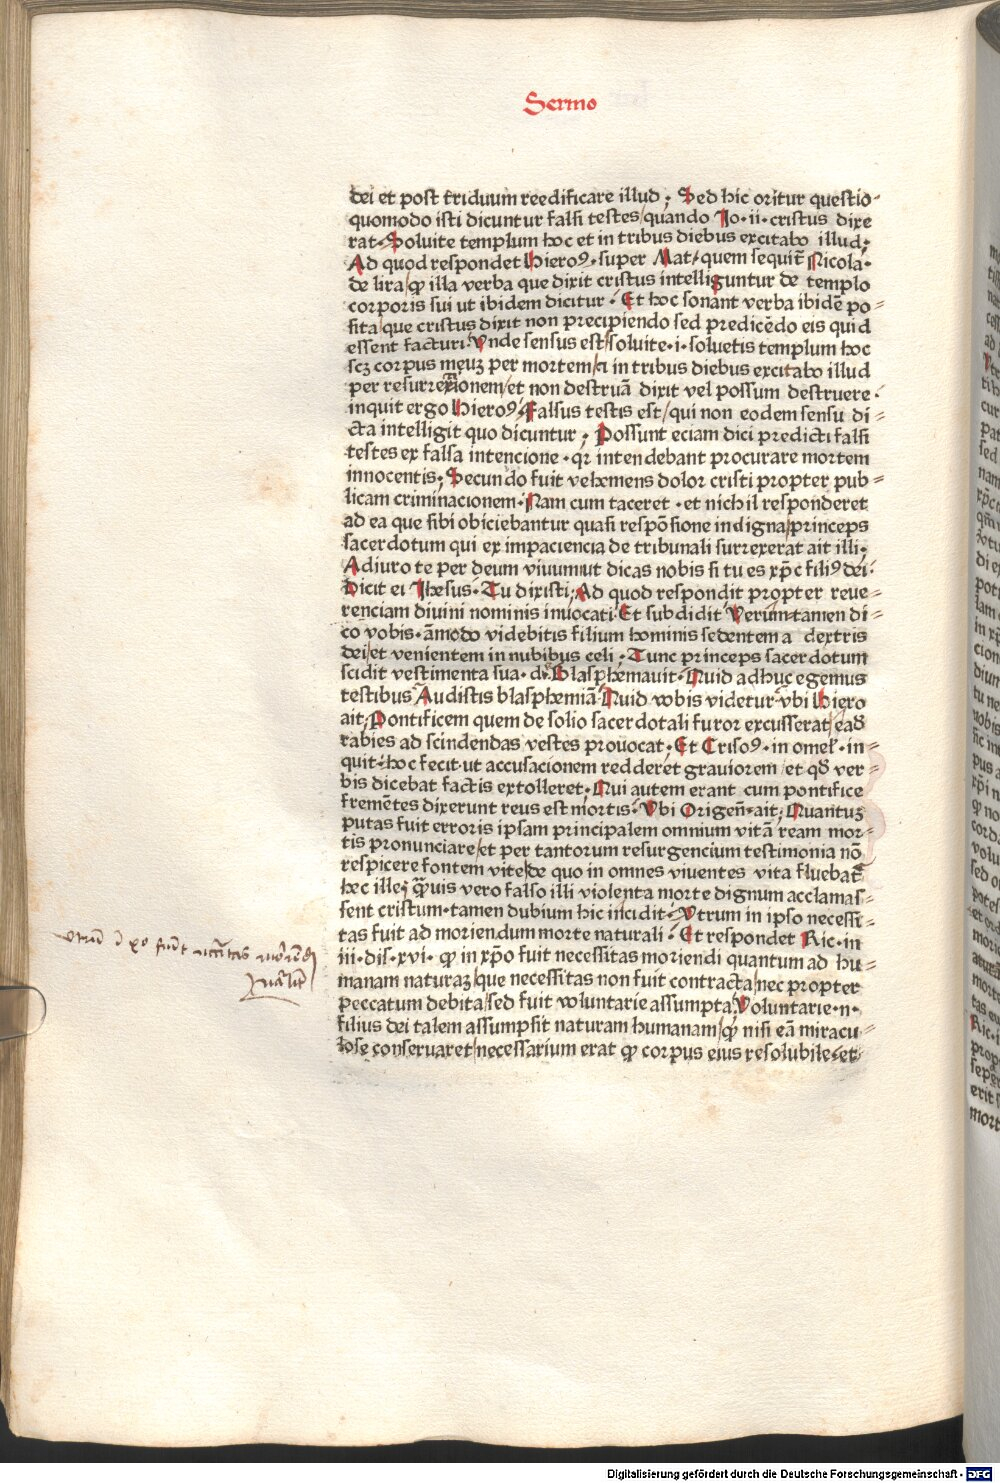 Sermo
dei et post triduum reedificare illud ; Sed hic oritur questio-
quomodo isti dicuntur falsi testes/quando Jo·ii·cristus dixe
rat·Soluite templum hoc et in tribus diebus excitabo illud;
Ad quod respondet Hieroꝰ·super Mat/quem sequit̃ Nicola·
de lira/ꝙ illa verba que dixit cristus intelliguntur de templo
corporis sui ut ibidem dicitur · Et hoc sonant verba ibidē po-
sita/que cristus dixit non precipiendo sed predicēdo eis quid
essent facturi·Vnde sensus est/soluite·i·soluetis templum hoc
scꝫ corpus meuꝫ per mortem/⁊ in tribus diebus excitabo illud
per resurrexionem/et non destruā dixit vel possum destruere·
inquit ergo Hieroꝰ·Falsus testis est/qui non eodem sensu di-
cta intelligit quo dicuntur ; Possunt eciam dici predicti falsi
testes ex falsa intencione·qꝛ intendebant procurare mortem
innocentis; Secundo fuit vehemens dolor cristi propter pub-
licam criminacionem·Nam cum taceret·et nichil responderet
ad ea que sibi obiciebantur quasi respōsione indigna/princeps
sacerdotum qui ex impaciencia de tribunali surrexerat ait illi·
Adiuro te per deum viuum/ut dicas nobis si tu es xp̄c filiꝰ dei·
Dicit ei Jhesus·Tu dixisti;Ad quod respondit propter reue-
renciam diuini nominis inuocati·Et subdidit Verumtamen di-
co vobis·āmodo videbitis filium hominis sedentem a dextris
dei/et venientem in nubibus celi·Tunc princeps sacerdotum
scidit vestimenta sua·dꝭ Blasphemauit·Quid adhuc egemus
testibus Audistis blasphemiā·Quid vobis videtur·vbi Hiero
ait;Pontificem quem de solio sacerdotali furor excusserat/eadꝫ
rabies ad scindendas vestes prouocat·Et Crisoꝰ·in omel·in-
quit·hoc fecit·ut accusacionem redderet grauiorem/et qd̄ ver-
bis dicebat factis extolleret·Qui autem erant cum pontifice
fremētes dixerunt reus est mortis·Vbi Origeñ·ait;Quantuꝫ
putas fuit erroris ipsam principalem omnium vitā ream mor-
tis pronunciare/et per tantorum resurgencium testimonia nō
respicere fontem vite/de quo in omnes viuentes vita fluebat
hec ille; ꝙ̄uis vero falso illi violenta morte dignum acclamas-
sent cristum·tamen dubium hic incidit·Vtrum in ipso necessi-
tas fuit ad moriendum morte naturali·Et respondet Ric·in
iii·dis·xvi·ꝙ in xp̄o fuit necessitas moriendi quantum ad hu-
manam naturaꝫ/que necessitas non fuit contracta/nec propter
peccatum debita/sed fuit voluntarie assumpta·Voluntarie·n·
filius dei talem assumpsit naturam humanam/ꝙ nisi eā miracu-
lose conseruaret/necessarium erat ꝙ corpus eius resolubile·et
Digitalisierung gefördert durch die Deutsche Forschungsgemeinschaft - DFG